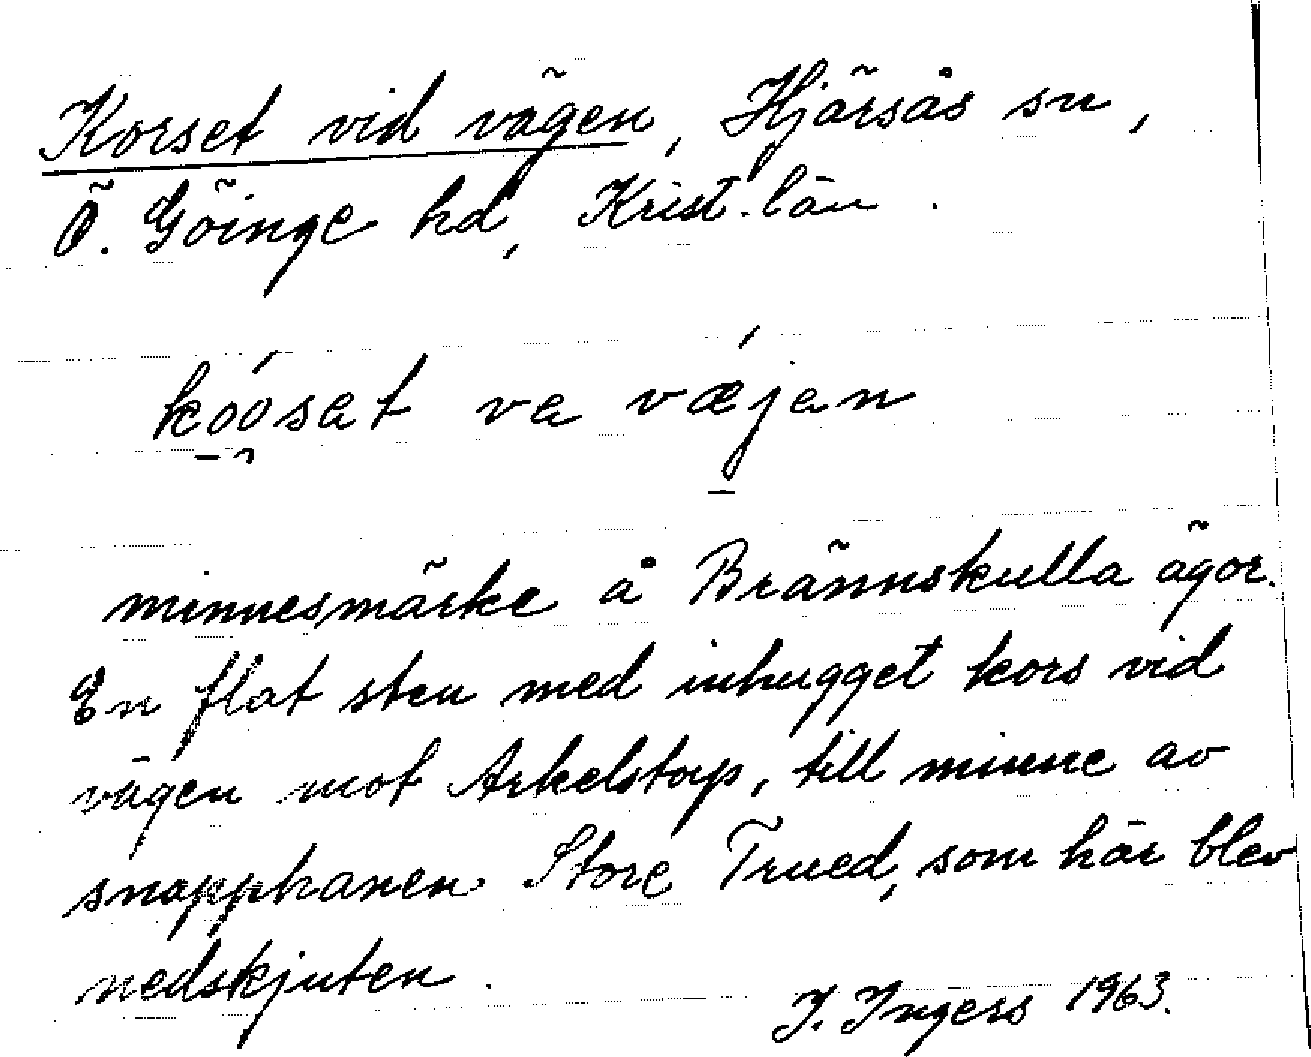 Korset vid vägen, Hjärsås sn,
Ö. Göinge hd, Krist. län.
kóosat va vǽjan
minnesmärke å Brännskulla ägor.
En flat sten med inhugget kors vid
vägen mot Arkelstorp, till minne av
snapphanen Store Trued, som här blev
nedskjuten.
I. Ingers 1963.